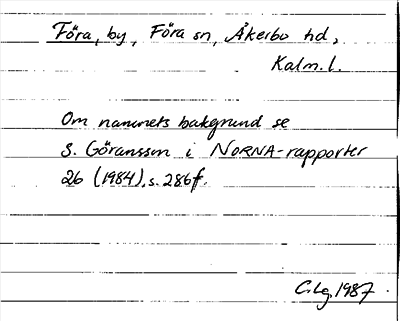 Föra, by, Föra sn, Åkerbo hd,
Kalm. l.
Om namnets bakgrund se
S. Göransson i NORNA-rapporter
26 (1984), s. 286f.
C.Lg. 1987